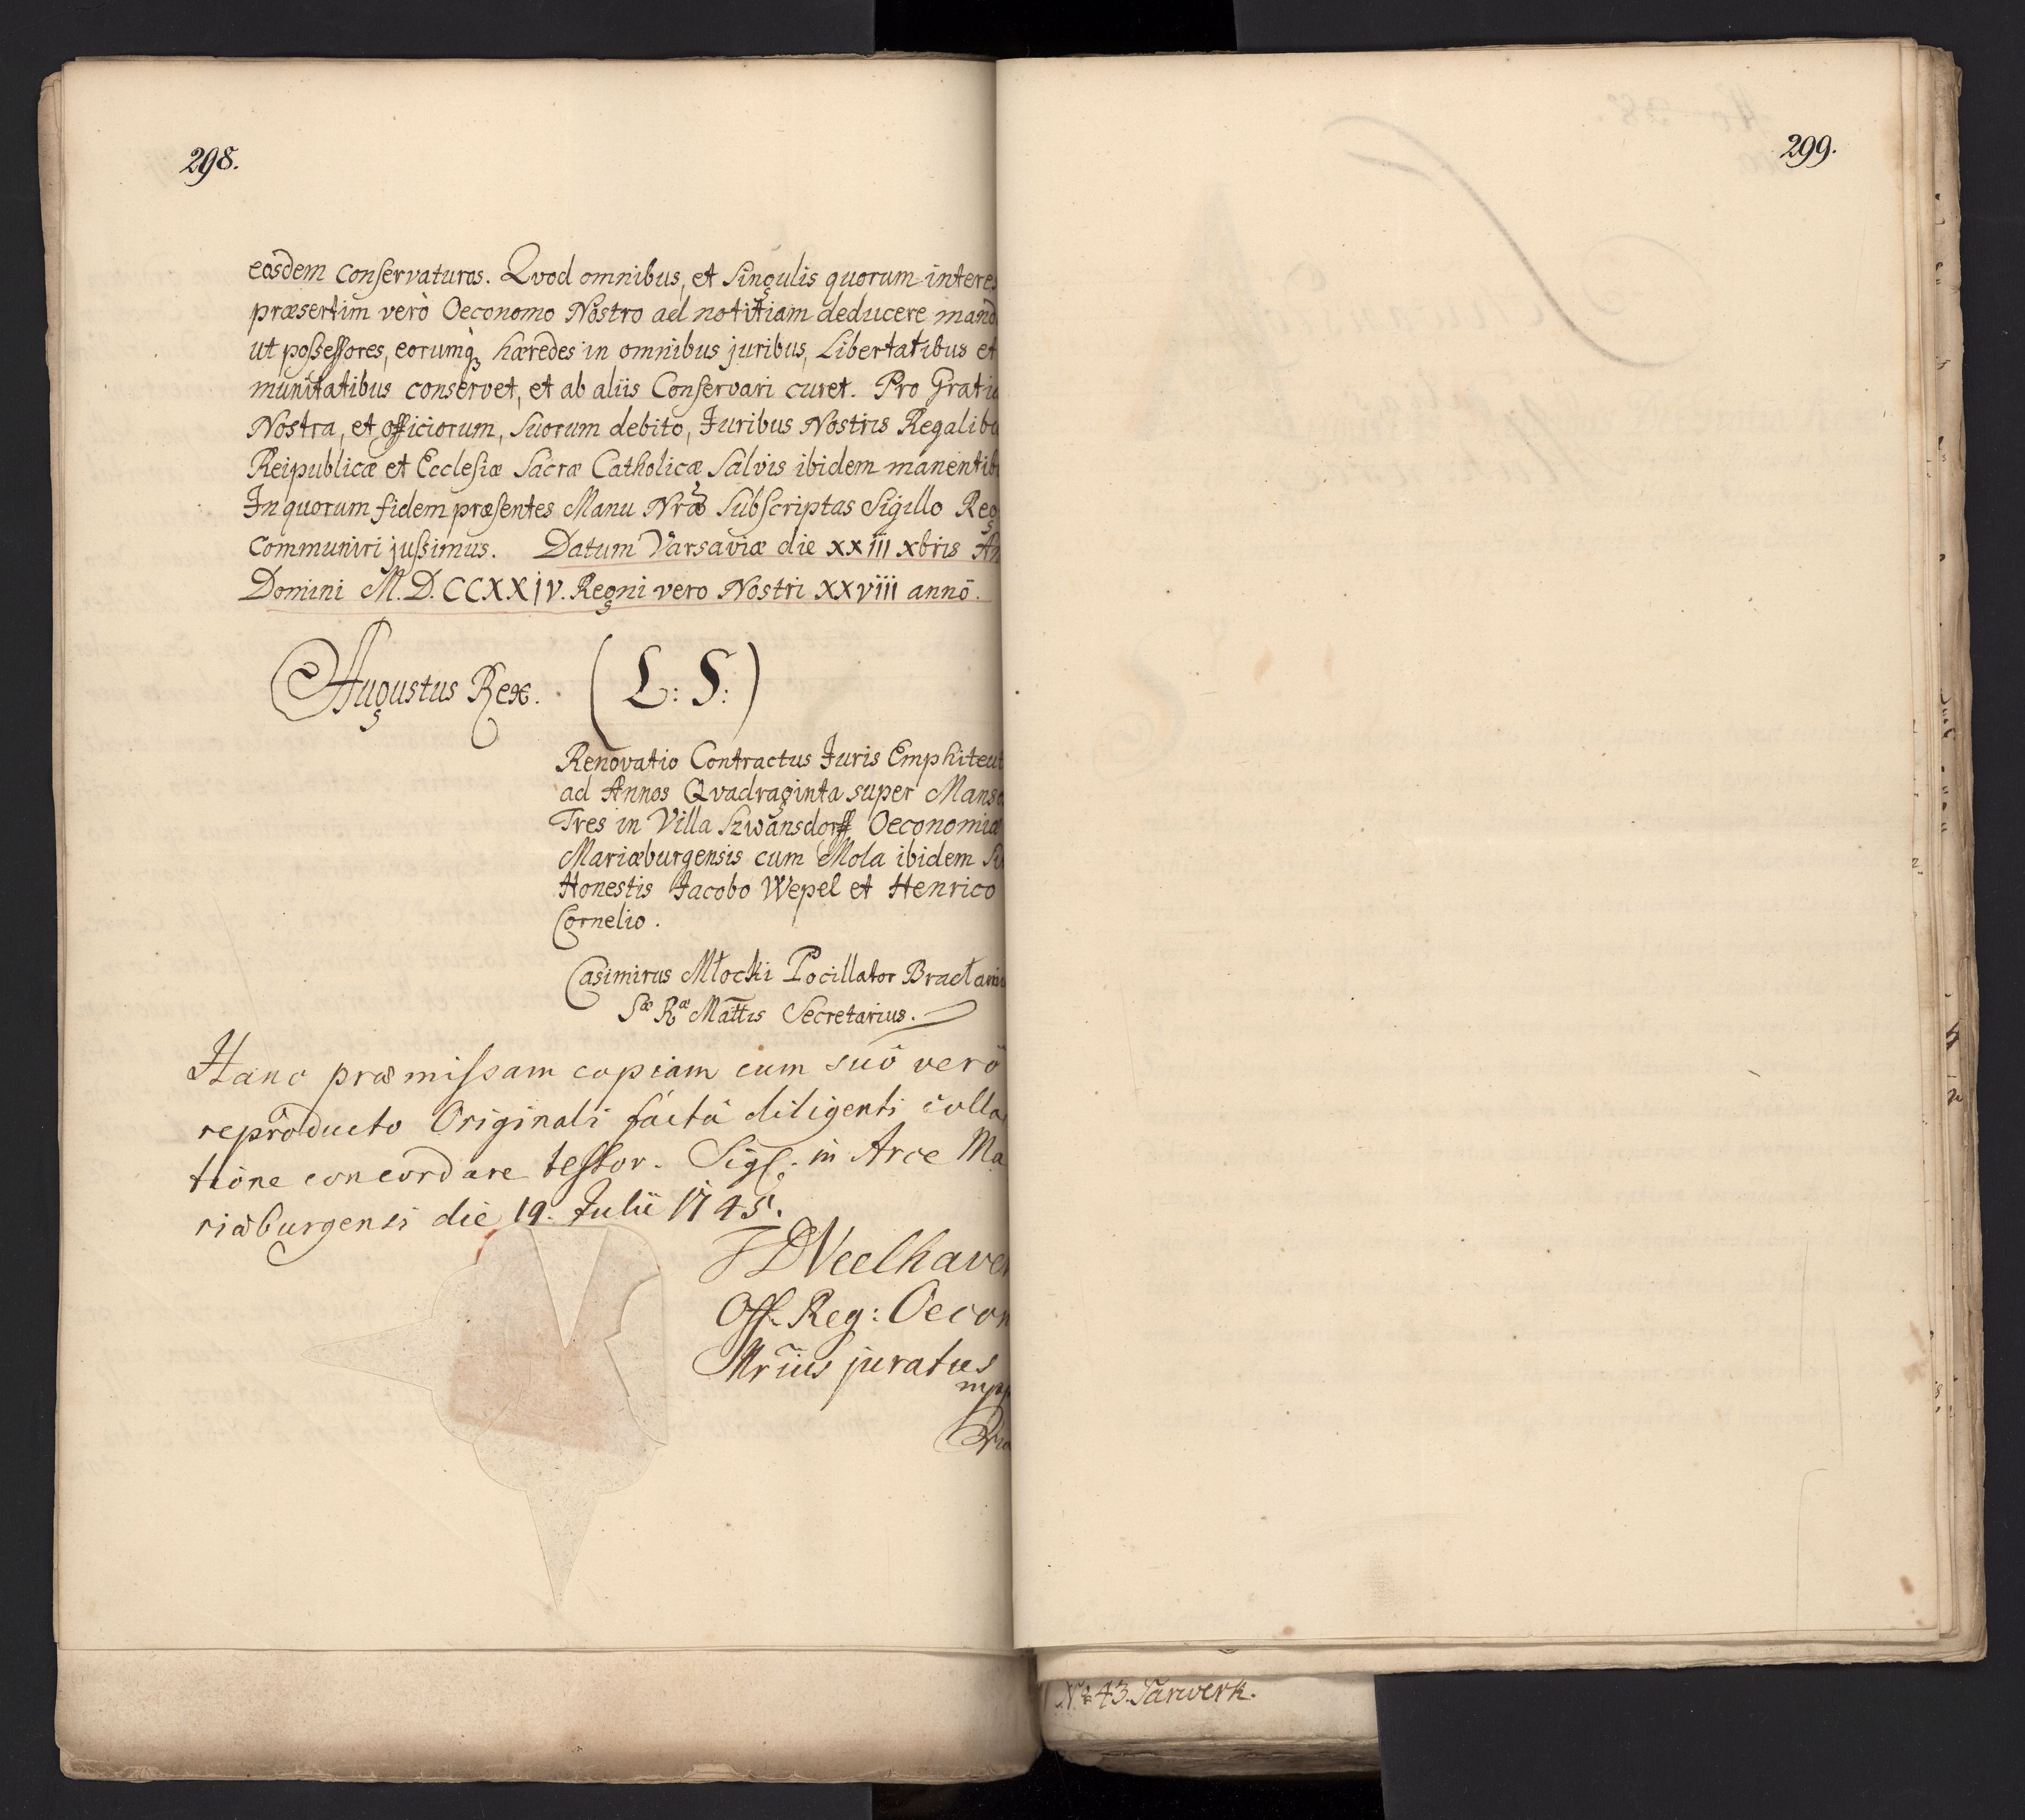 298.
eosdem conservaturos. Qvod omnibus, et singulis quorum interes
præsertim verò Oeconomo Nostro ad notitiam deducere mand
ut possessores, eorumq₃ hæredes in omnibus juribus, Libertatibus et
munitatibus conservet, et ab aliis Conservari curet. Pro Gratia
Nostra, et officiorum, suorum debito, Juribus Nostris Regalibu
Reipublicæ et Ecclesiæ Sacræ Catholicæ salvis ibidem manentib
In quorum fidem præsentes Manu Nrã subscriptas Sigillo Reg
communiri jussimus. Datum Varsaviæ die xxiii xbris An
Domini M.D.CCXXiV. Regni vero Nostri xxviii annō.
Augustus Rex. (L: S:)
Renovatio Contractus Juris Emphiteut
ad Annos Qvadraginta super Manso
Tres in Villa Szwansdorff Oeconomiæ
Mariæburgensis cum Mola ibidem
Honestis Jacobo Wepel et Henrico
Cornelio.
Casimirus Młocki Pocillator Bracłavie
Sæ Ræ Mattis Secretarius.
Hanc præmissam copiam cum suô verô
reproducto Originali factâ diligenti colla
tione concordare testor. Sigl: in Arce Ma
riæburgensi die 19. Julii 1745.
Off. Reg: Oecon
juratus
mpp
299.
No 43. Parwerk.